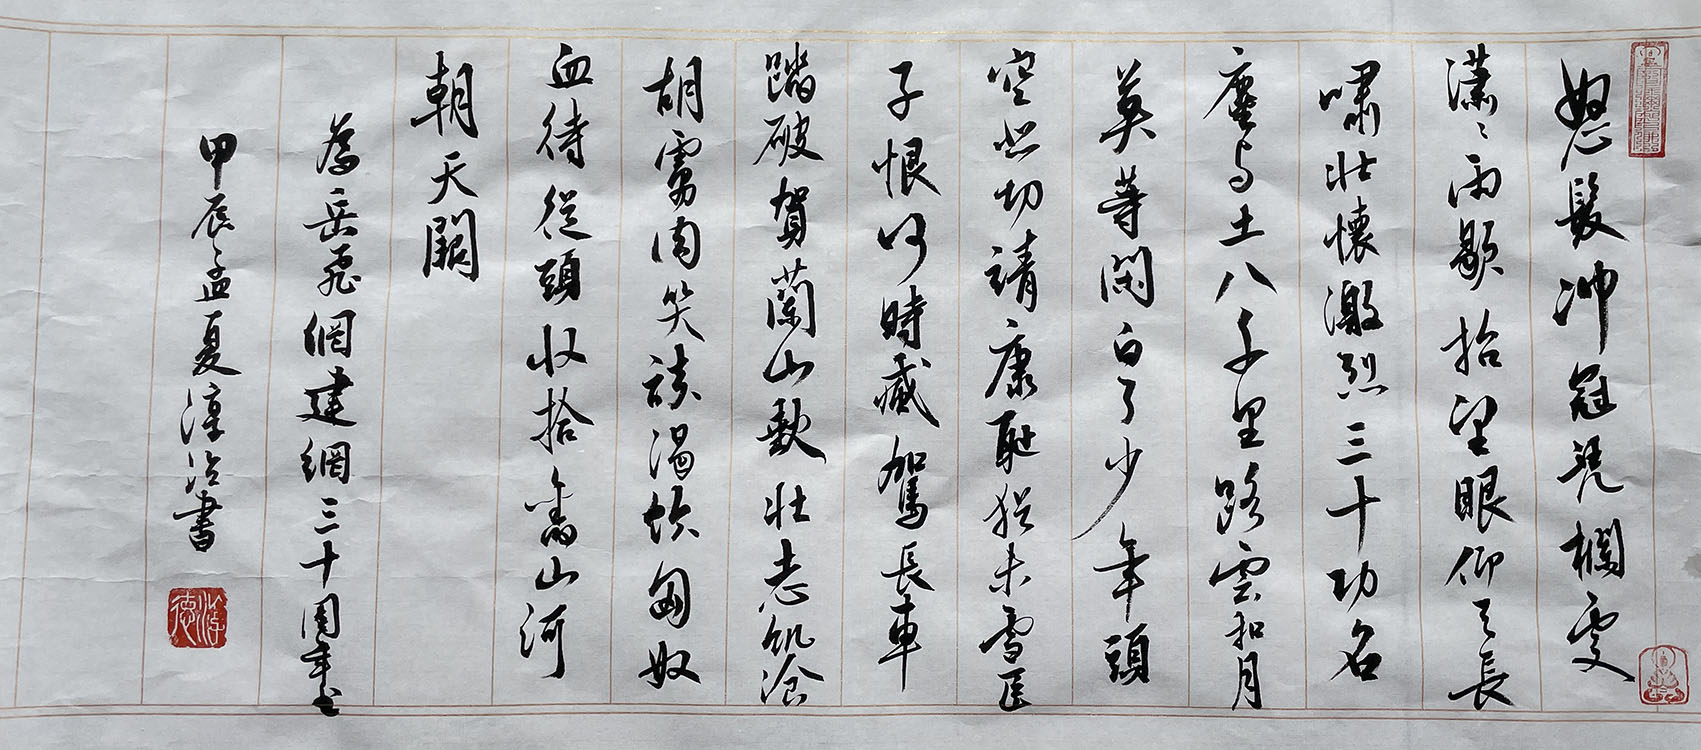 怒髮冲冠凭欄處
瀟〻雨歇抬望眼仰天長
嘯壯懷激烈三十功名
塵与土八千里路雲和月
莫等閑白了少年頭
空悲切靖康耻猶未雪臣
子恨何時滅駕長車
踏破賀蘭山缺壯志飢飡
胡虜肉笑談渴飲匈奴
血待從頭收拾舊山河
朝天闕
為岳飛網建網三十周年
甲辰孟夏淳治書